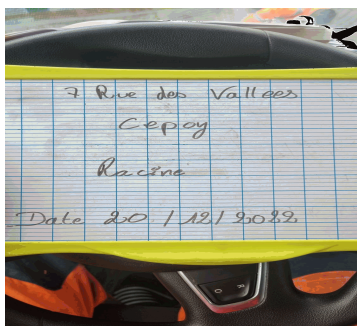 7 Rue des Vallees
Cepoy
Racine
Date 20 / 12 / 2022